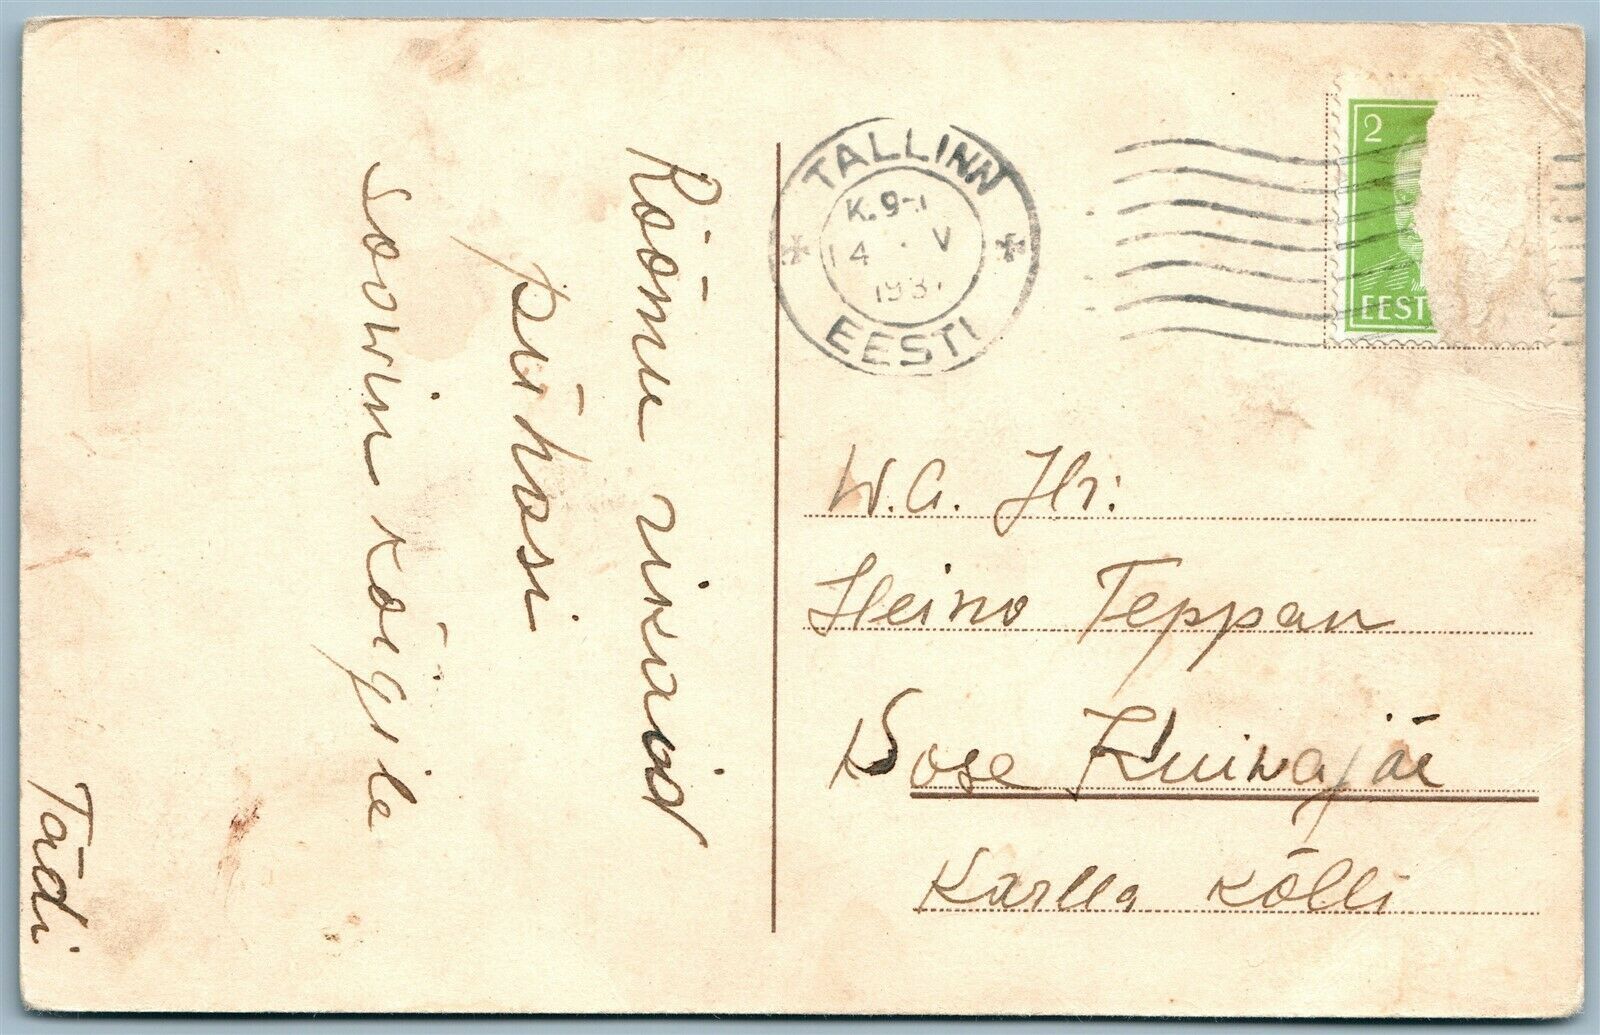 Rõõmu rikaid
pühasi
soowin kõigile
Tädi
TALLINN
K. 9-
14 . V
193
EESTI
2
EEST
W. A. Hr:
Heino Teppan
Kose Kuiwajõe
Karlla Kõlli